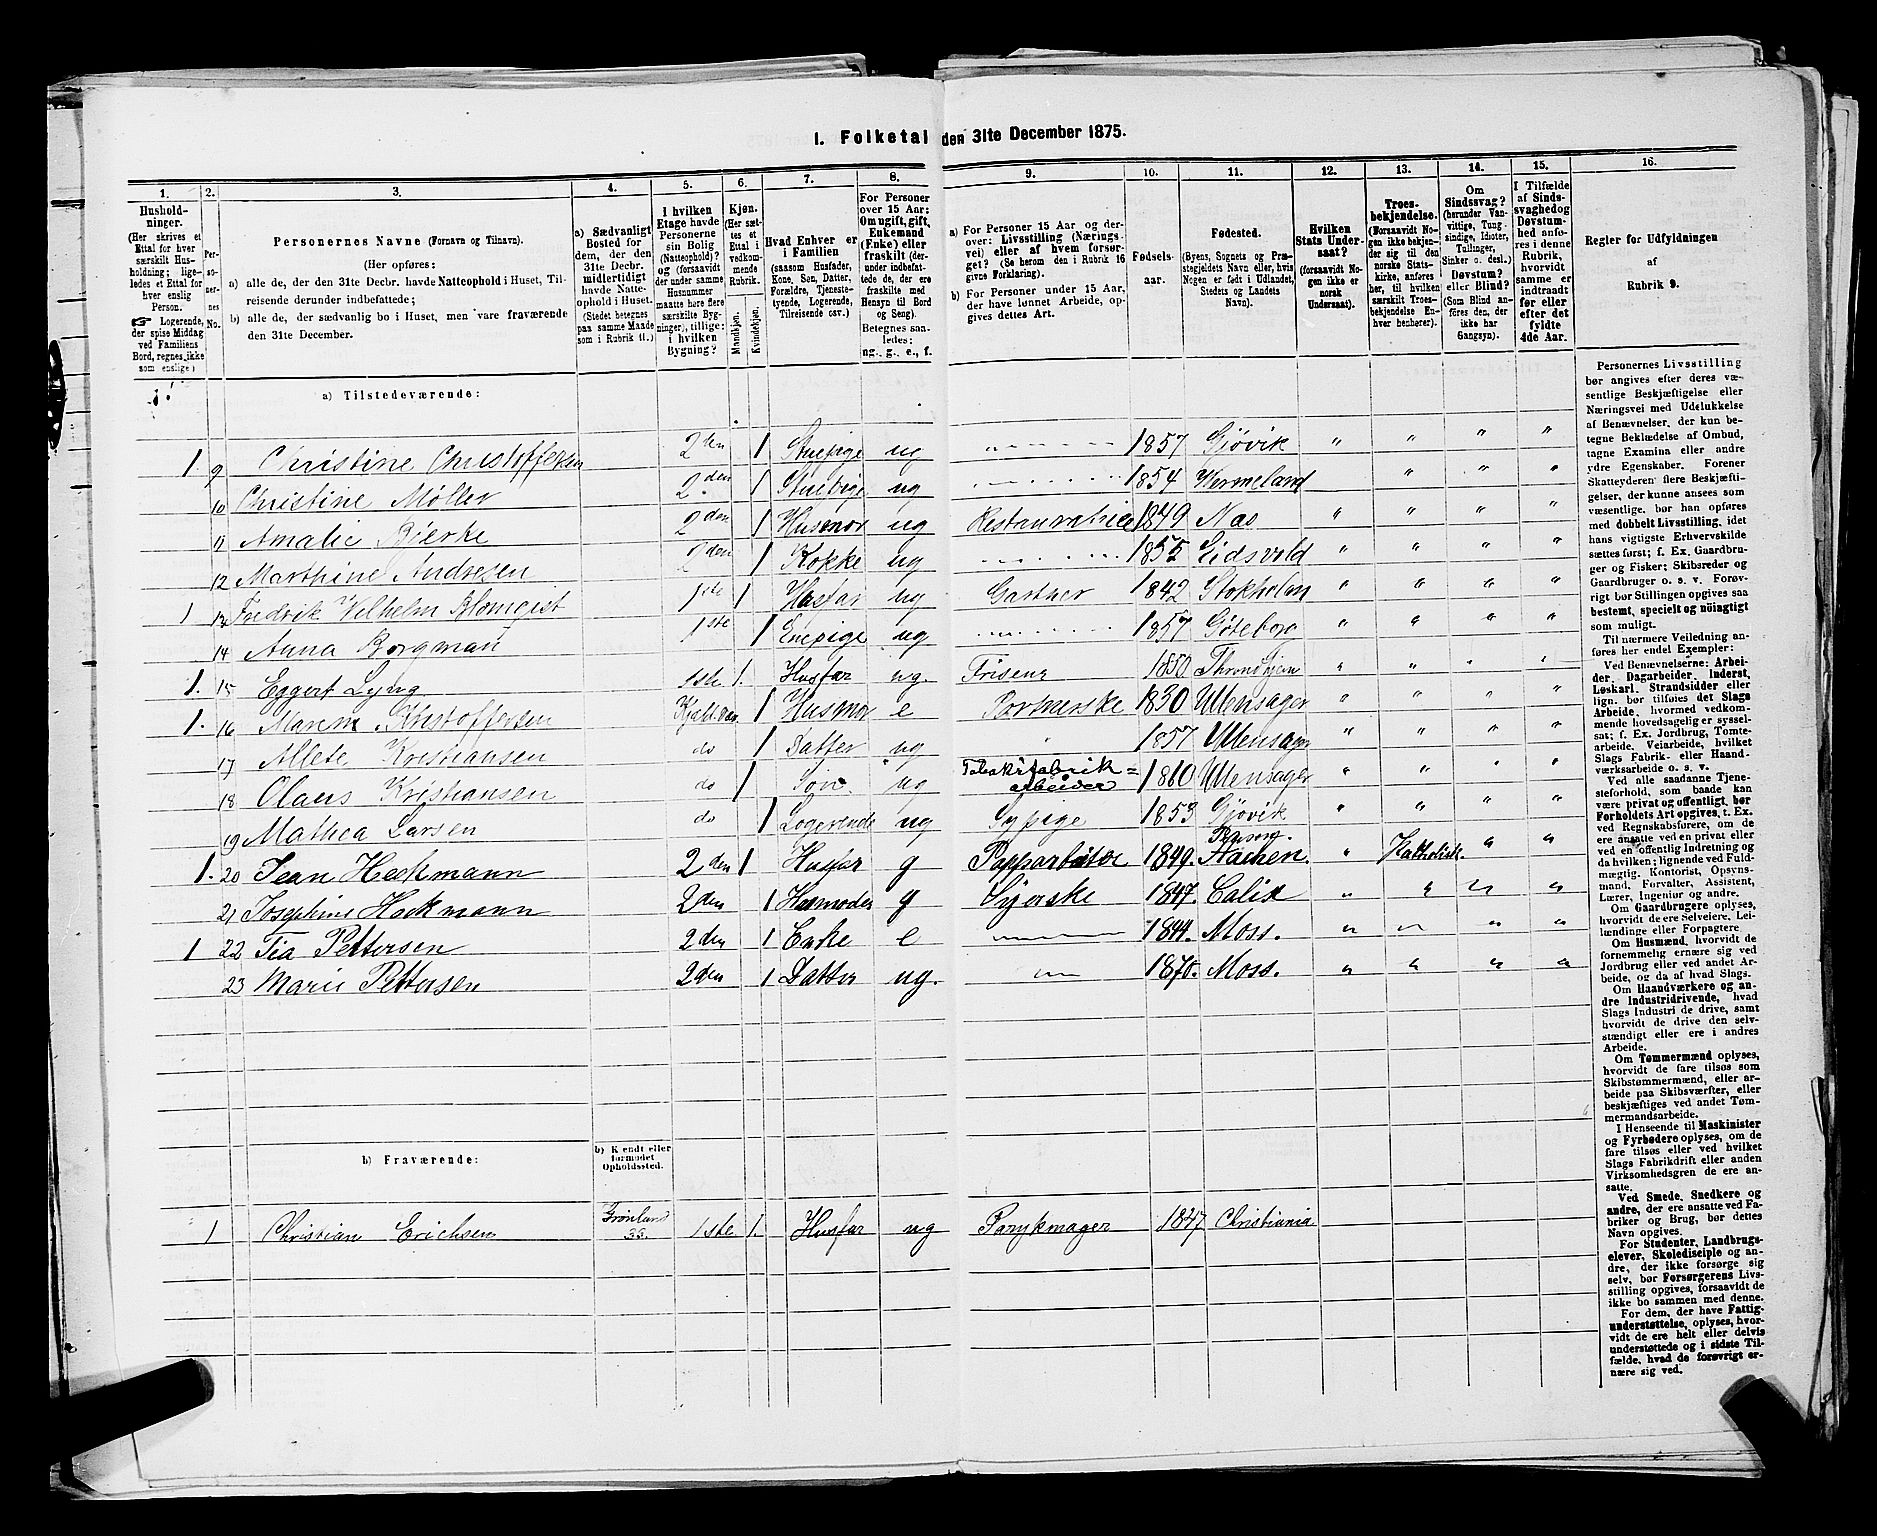 1. Folketal den 31te December 1875.
1. 2. 3. 4. 5. 6. 7. 8. 9. 10. 11. 12. 13. 14. 15. 16.
Hushold-
ninger.
(Her skrives et
Ettal for hver
særskilt Hus-
holdning; lige-
ledes et Ettal for
hver enslig
Person.
☞ Logerende,
der spise Middag
ved Familiens
Bord, regnes ikke
som enslige)
Per-
so-
ner-
nes
No.
Personernes Navne (Fornavn og Tilnavn).
(Her opføres:
a) alle de, der den 31te Decbr. havde Natteophold i Huset, Til-
reisende derunder indbefattede;
b) alle de, der sædvanlig bo i Huset, men vare fraværende
den 31te December.
a) Sædvanligt
Bosted for
dem, der den
31te Decbr.
midlertidigt
havde Natte-
ophold i Huset.
(Stedet betegnes
paa samme Maade
som i Rubrik 11.)
I hvilken
Etage havde
Personerne
sin Bolig
(Natteophold)?
og (forsaavidt
der under samme
Husnummer
maatte høre flere
særskilte Byg-
ninger), tillige:
i hvilken
Bygning?
Kjøn.
(Her sæt-
tes et
Ettal i
vedkom-
mende
Rubrik.
Mandkjøn.
Kvindekjøn.
Hvad Enhver er
i Familien
(saasom Husfader,
Kone, Søn, Datter,
Forældre, Tjeneste-
tyende, Logerende,
Tilreisende osv.)
For Personer
over 15 Aar:
Om ugift, gift,
Enkemand
(Enke) eller
fraskilt
(derunder indbefat-
tede de, der ere
fraskilte med
Hensyn til Bord
og Seng).
Betegnes saa-
ledes:
ug., g., e., f.
a) For Personer 15 Aar og der-
over: Livsstilling (Nærings-
vei) eller af hvem forsør-
get? (Se herom den i Rubrik 16
givne Forklaring).
b) For Personer under 15 Aar,
der have lønnet Arbeide, op-
gives dettes Art.
Fødsels-
aar.
Fødested.
(Byens, Sognets og Præ-
stegjeldets Navn eller, hvis
Nogen er født i Udlandet,
Stedets og Landets
Navn).
Hvilken
Stats Under-
saat?
(forsaavidt No-
gen ikke er
norsk
Undersaat).
Troes-
bekjendelse.
(Forsaavidt No-
gen ikke bekjen-
der sig til den
norske Stats-
kirke, anføres
her, til hvilken
særskilt Troes-
bekjendelse En-
hver henhører).
Om
Sindssvag?
(herunder Van-
vittige, Tung-
sindige, Idioter,
Tullinger,
Sinker o. desl.)
Døvstum?
eller Blind?
(Som Blind an-
føres den, der
ikke har
Gangsyn).
I Tilfælde
af Sinds-
svaghed og
Døvstum-
hed anfø-
res i denne
Rubrik,
hvorvidt
samme er
indtraadt
før eller
efter det
fyldte
4de Aar.
Regler for Udfyldningen
af
Rubrik 9.
a) Tilstedeværende:
1. 9 Christine Christoffersen 2den 1 Stuepige ug " 1857 Gjövik " " " "
10 Christine Møller 2den 1 Stuepige ug 1854 Wermeland " " "
11 Amalie Bjerke 2den 1 Husmor ug Restauratrice 1849 Nas " " " "
12 Marthine Andresen 2den 1 Kokke ug 1855 Eidsvold " " " "
1 13 Fredrik Vilhelm Blomqist 1ste 1 Husfar ug Gartner 1842 Stokholm " " " "
14 Anna Borgman 1ste 1 Enepige ug 1857 Göteborg " " " "
1. 15 Eggert Lyng 1ste 1. Husfar ug. Frisenr 1850 Throndhjem " " " "
1. 16 Maren Kristoffersen 1 Husmor e Portnerske 1830 Ullensager " " " "
17 Allete Kristiansen do 1 Datter ug " 1857 Ullensager " " " "
18 Olaus Kristiansen do 1 Søn ug Tobaksfabrik=
arbeider 1860 Ullensager " " " "
19 Mathea Larsen do 1 Logerende ug Sypige 1853 Gjövik " " " "
1. 20 Jean Heckmann 2den 1 Husfar g Papparbeider 1849. Aachen. " Katholisk. " "
21 Josephine Heckmann 2den 1 Husmoder g Syerske 1847. Calix " " " "
1 22 Tia Pettersen 2den 1 Enke e 1844. Moss. " " " "
23 Marie Pettersen 2den 1 Datter ug. 1870. Moss. " " " "
b) Fraværende:
b) Kjendt eller
formodet
Opholdssted.
1 Christian Erichsen Grönland
33. 1ste 1. Husfar ug Parykmager 1847 Christiania
Personernes Livsstilling
bør angives efter deres væ-
sentlige Beskjæftigelse eller
Næringsvei med Udelukkelse
af Benævnelser, der kun be-
tegne Beklædelse af Ombud,
tagne Examina eller andre
ydre Egenskaber. Forener
Skatteyderen flere Beskjæfti-
gelser, der kunne ansees som
væsentlige, bør han opføres
med dobbelt Livsstilling, idet
hans vigtigste Erhvervskilde
sættes først; f. Ex. Gaardbru-
ger og Fisker; Skibsreder og
Gaardbruger o. s. v. Forøv-
rigt bør Stillingen opgives saa
bestemt, specielt og nøiagtigt
som muligt.
Til nærmere Veiledning an-
føres her endel Exempler:
Ved Benævnelserne: Arbei-
der, Dagarbeider, Inderst,
Løskarl, Strandsidder eller
lign. bør tilføies det Slags
Arbeide, hvormed vedkom-
mende hovedsagelig er syssel-
sat; f. Ex. Jordbrug, Tomte-
arbeide, Veiarbeide, hvilket
Slags Fabrik- eller Haand-
værksarbeide o. s. v.
Ved alle saadanne Tjene-
steforhold, som baade kan
være privat og offentligt, bør
Forholdets Art opgives, t. Ex.
ved Regnskabsførere, om de
ere ansatte ved en privat eller
ved en offentlig Indretning og
da hvilken; lignende ved Fuld-
mægtig, Kontorist, Opsyns-
mand, Forvalter, Assistent,
Lærer, Ingeniør og andre.
Om Gaardbrugere oplyses,
hvorvidt de ere Selveiere, Lei-
lændinge eller Forpagtere
Om Husmænd, hvorvidt de
fornemmelig ernære sig ved
Jordbrug eller ved andet Ar-
beide, og da af hvad Slags.
Om Haandværkere og an-
dre Industridrivende, hvad
Slags Industri de drive, samt
hvorvidt de drive den selv-
stændigt eller ere i andres
Arbeide.
Om Tømmermænd oplyses,
hvorvidt de fare tilsøs som
Skibstømmermænd, eller ar-
beide paa Skibsværfter, eller
beskjæftiges ved andet Tøm-
mermandsarbeide.
I Henseende til Maskinister
og Fyrbødere oplyses, om de
fare tilsøs eller ved hvilket
Slags Fabrikdrift eller anden
Virksomhedsgren de ere an-
satte.
Ved Smede, Snedkere og
andre, der ere ansatte ved Fa-
briker og Brug, bør dettes
Navn opgives.
For Studenter, Landbrugs-
elever, Skoledisciple og an-
dre, der ikke forsørge sig
selv, bør Forsørgerens Livs-
stilling opgives, forsaavidt de
ikke bo sammen med denne.
For dem, der have Fattig-
understøttelse, oplyses, hvor-
vidt de ere helt eller delvis
understøttede og i sidste Til-
fælde, hvad de forøvrigt er-
nære sig ved.